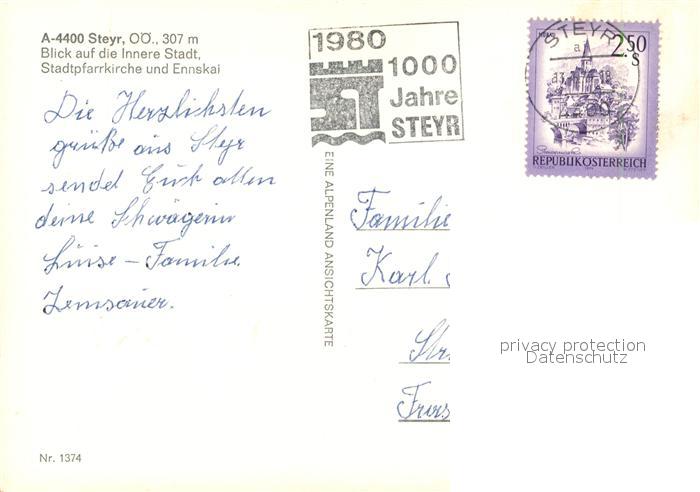 A-4400 Steyr, OÖ., 307 m
Blick auf die Innere Stadt,
Stadtpfarrkirche und Ennskai
Die Herzlichsten
grüße aus Steyr
sendet Euch allen
deine Schwägerin
Luise – Familie
Nr. 1374
EINE ALPENLAND ANSICHTSKARTE
1980
1000
Jahre
STEYR
STEYR
a
2.50
S
4400
REPUBLIK ÖSTERREICH
Familie
Karl
Str.
privacy protection
Datenschutz